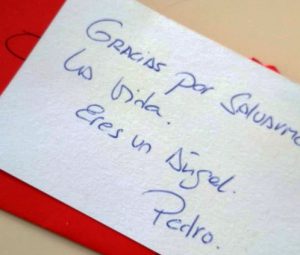 Gracias por Salvarme
la Vida.
Eres un Ángel.
Pedro.